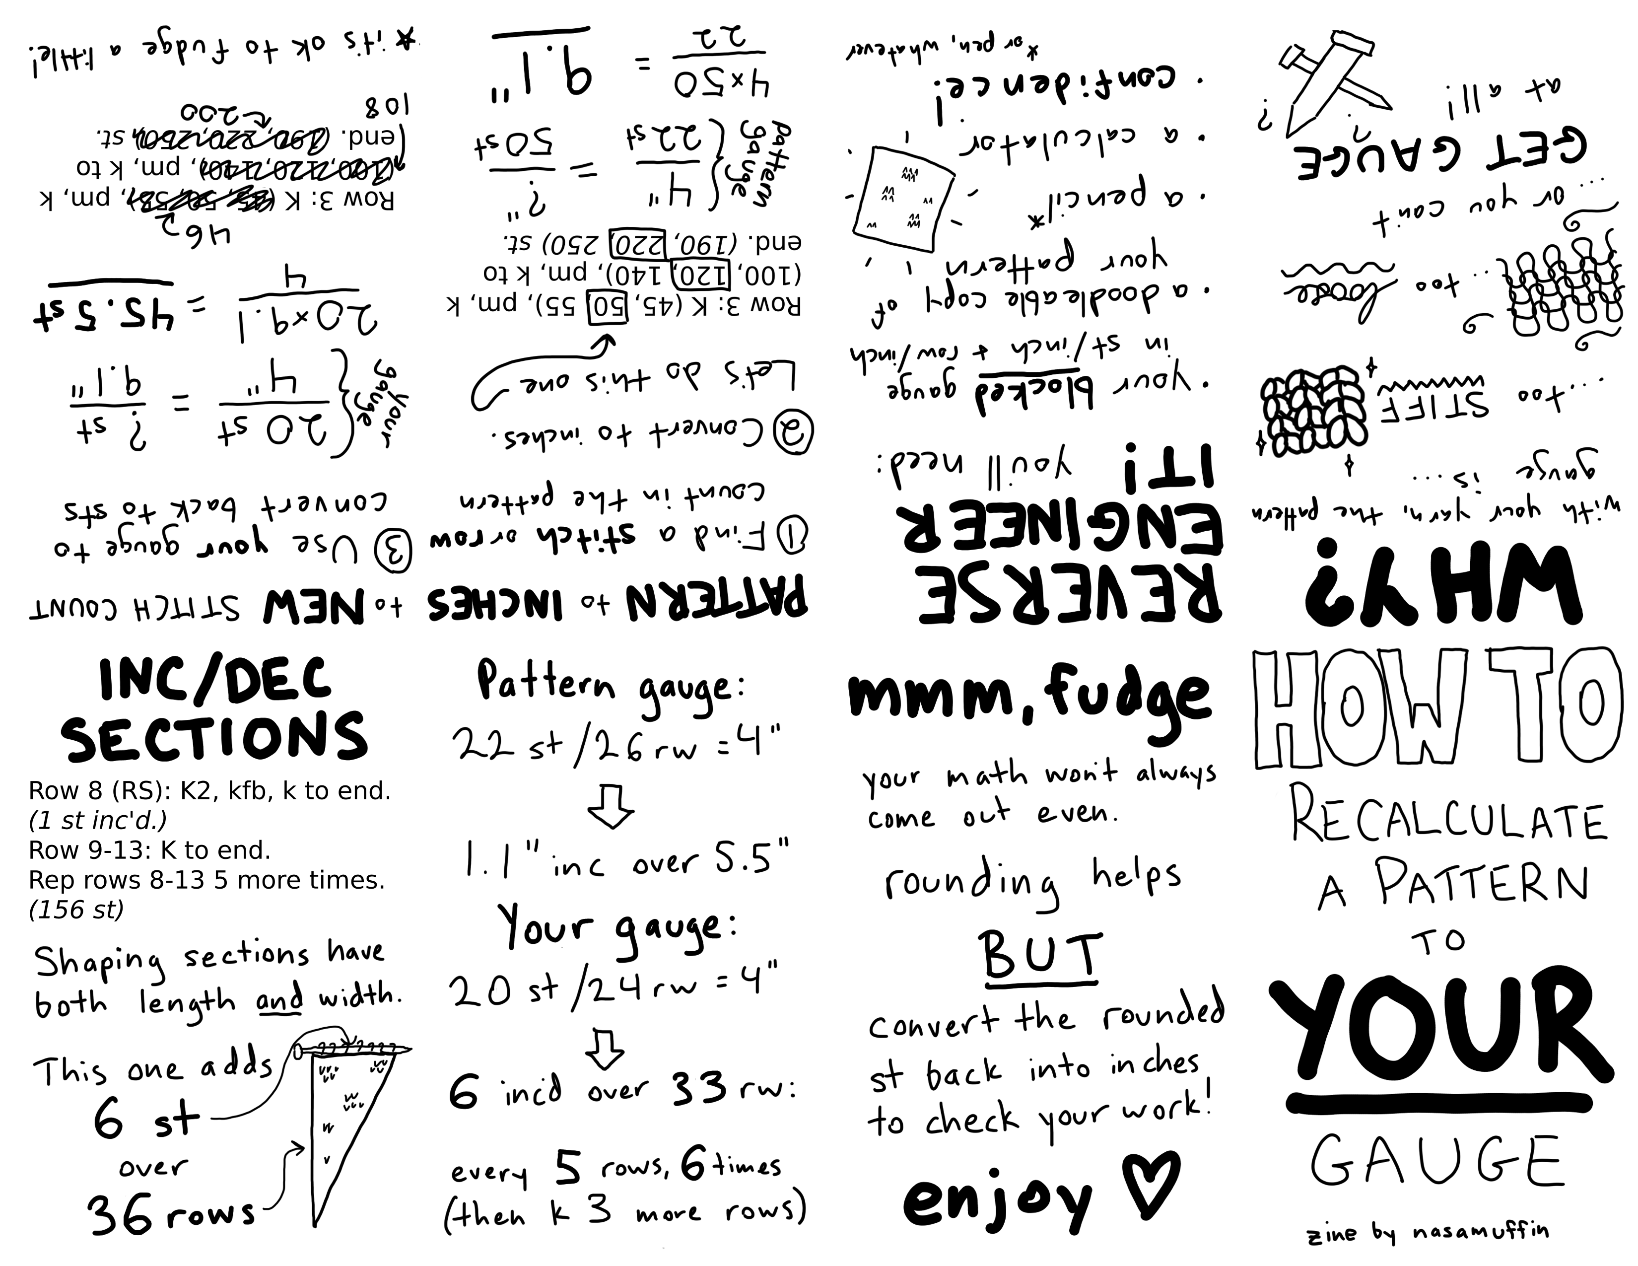 HOW TO
RECALCULATE
A PATTERN
TO
YOUR
GAUGE
zine by nasamuffin
WHY?
with your yarn, the pattern
gauge is...
...too STIFF
...too loose
...or you can't
GET GAUGE
? ?
at all!
REVERSE
ENGINEER
IT! you'll need:
· your blocked gauge
in st/inch + row/inch
· a doodleable copy of
your pattern
· a pencil*
· a calculator
· confidence!
*or pen, whatever
PATTERN to INCHES
① Find a stitch or row
count in the pattern
② Convert to inches.
Let's do this one
Row 3: K (45, 50, 55), pm, k
(100, 120, 140), pm, k to
end. (190, 220, 250) st.
pattern gauge { 4"/22 st = ?"/50 st
4×50/22 = 9.1"
to NEW STITCH COUNT
③ Use your gauge to
convert back to sts
your gauge { 20 st/4" = ? st/9.1"
20×9.1/4 = 45.5 st
46
Row 3: K (45, 50, 55), pm, k
(100, 120, 140), pm, k to
end. (190, 220, 250) st.
108 200
*it's ok to fudge a little!
INC/DEC
SECTIONS
Row 8 (RS): K2, kfb, k to end.
(1 st inc'd.)
Row 9-13: K to end.
Rep rows 8-13 5 more times.
(156 st)
Shaping sections have
both length and width.
This one adds
6 st
over
36 rows
Pattern gauge:
22 st/26 rw = 4"
1.1" inc over 5.5"
Your gauge:
20 st/24 rw = 4"
6 inc'd over 33 rw:
every 5 rows, 6 times
(then k 3 more rows)
mmm, fudge
your math won't always
come out even.
rounding helps
BUT
convert the rounded
st back into inches
to check your work!
enjoy ♡